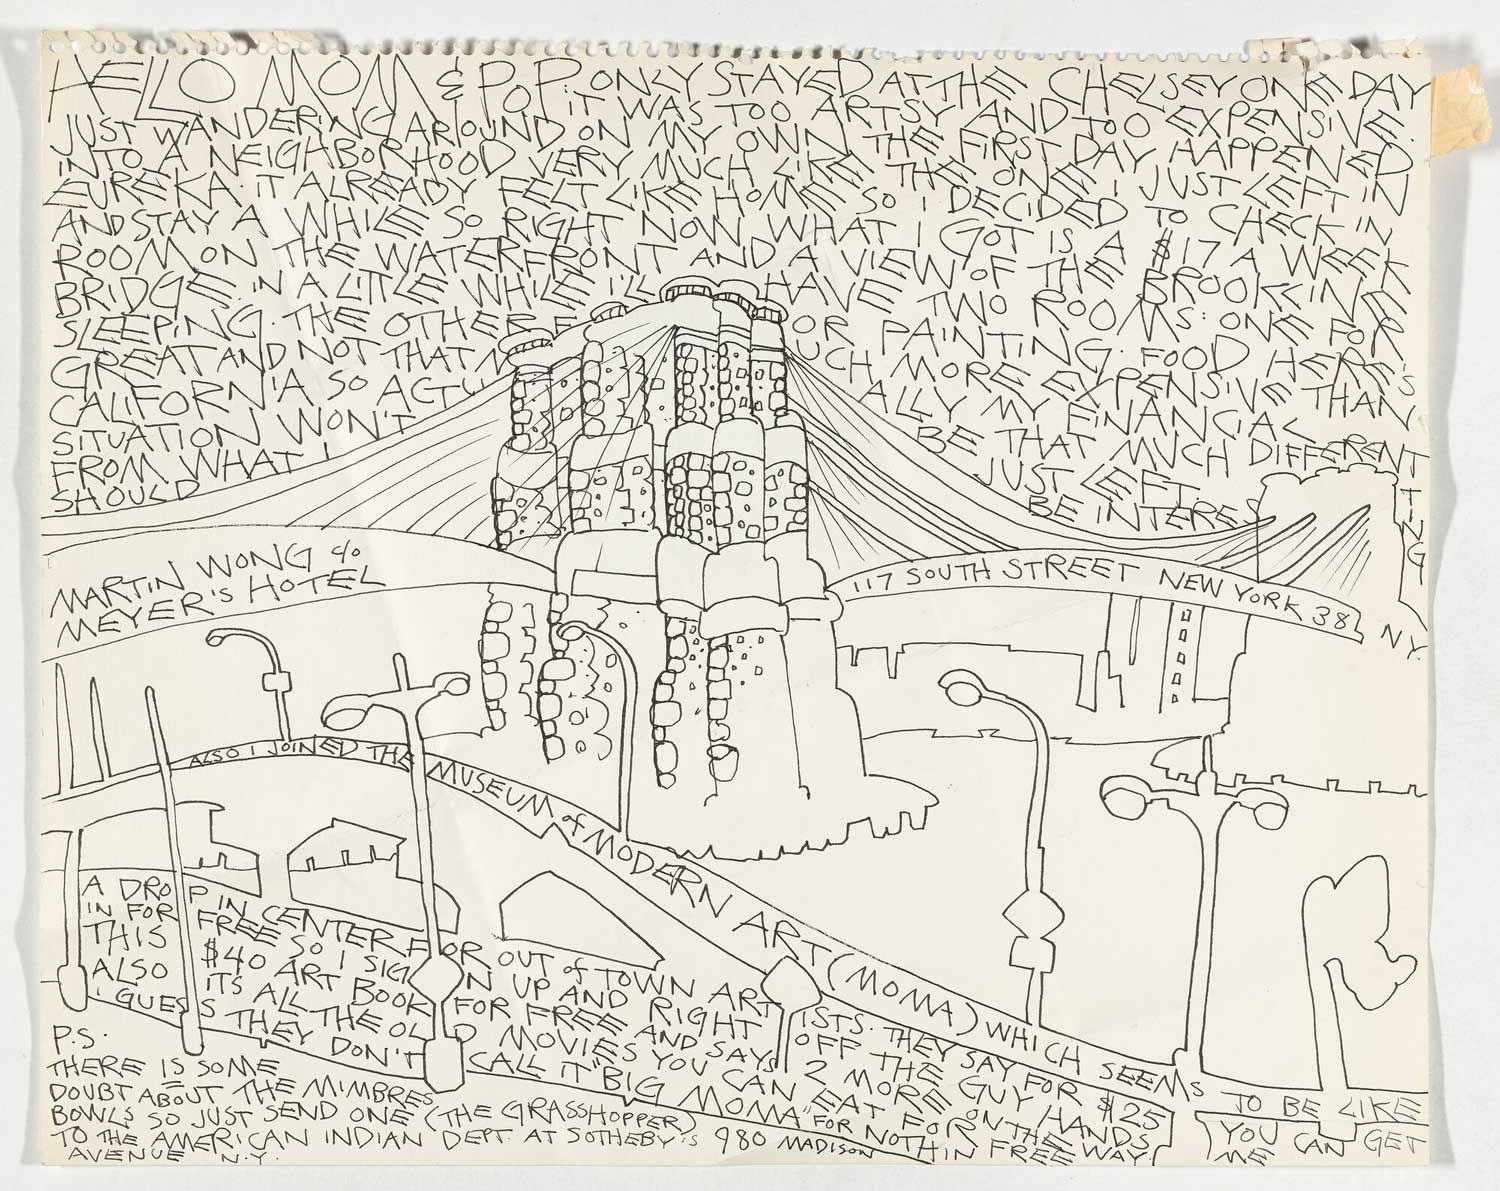 HELLO MOM & POP ONLY STAYED AT THE CHELSEY ONE DAY
IT WAS TOO ARTSY AND TOO EXPENSIVE.
JUST WANDERING AROUND ON MY OWN THE FIRST DAY HAPPENED
INTO A NEIGHBORHOOD VERY MUCH LIKE THE ONE I JUST LEFT IN
EUREKA IT ALREADY FELT LIKE HOME SO I DECIDED TO CHECK IN
AND STAY A WHILE SO RIGHT NOW WHAT I GOT IS A $17 A WEEK
ROOM ON THE WATERFRONT AND A VIEW OF THE BROOKLINE
BRIDGE. IN A LITTLE WHILE I'LL HAVE TWO ROOMS: ONE FOR
SLEEPING. THE OTHER FOR PAINTING. FOOD HERE'S
GREAT AND NOT THAT MUCH MORE EXPENSIVE THAN
CALIFORNIA SO ACTUALLY MY FINANCIAL
SITUATION WON'T BE THAT MUCH DIFFERENT
FROM WHAT I JUST LEFT.
SHOULD BE INTERESTING
MARTIN WONG c/o
MEYER'S HOTEL
117 SOUTH STREET NEW YORK 38 N.Y.
ALSO I JOINED THE MUSEUM of MODERN ART (MOMA) WHICH SEEMS TO BE LIKE
A DROP IN CENTER FOR OUT of TOWN ARTISTS. THEY SAY FOR $25 YOU CAN GET
IN FOR FREE SO I SIGN UP AND RIGHT OFF THE GUY HANDS ME
THIS $40 ART BOOK FOR FREE AND SAYS 2 MORE on THE WAY.
ALSO ITS ALL THE OLD MOVIES YOU CAN EAT FOR FREE
I GUESS THEY DON'T CALL IT "BIG MOMA" FOR NOTHIN
P.S.
THERE IS SOME
DOUBT ABOUT THE MIMBRES
BOWLS SO JUST SEND ONE (THE GRASSHOPPER)
TO THE AMERICAN INDIAN DEPT. AT SOTHEBY'S 980 MADISON
AVENUE N.Y.